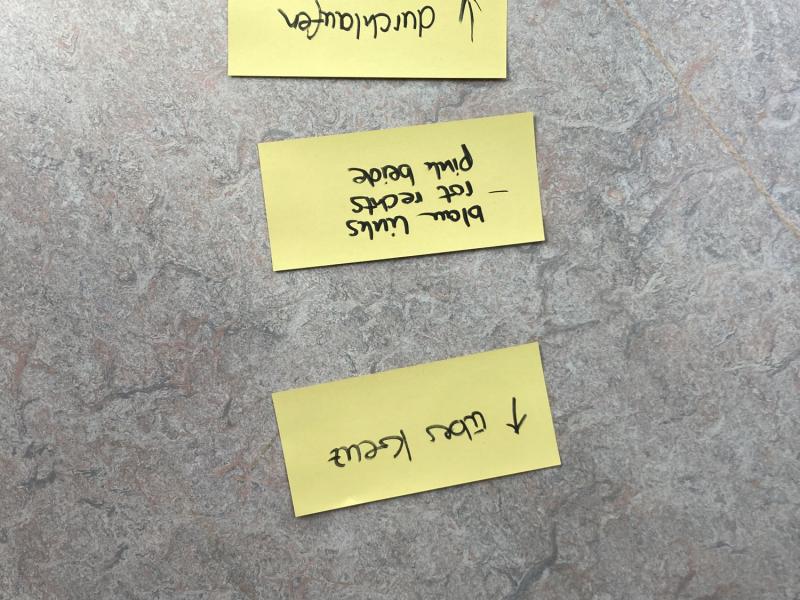 ↑ über Kreuz
blau links
- rot rechts
pink beide
↑ durchlaufen